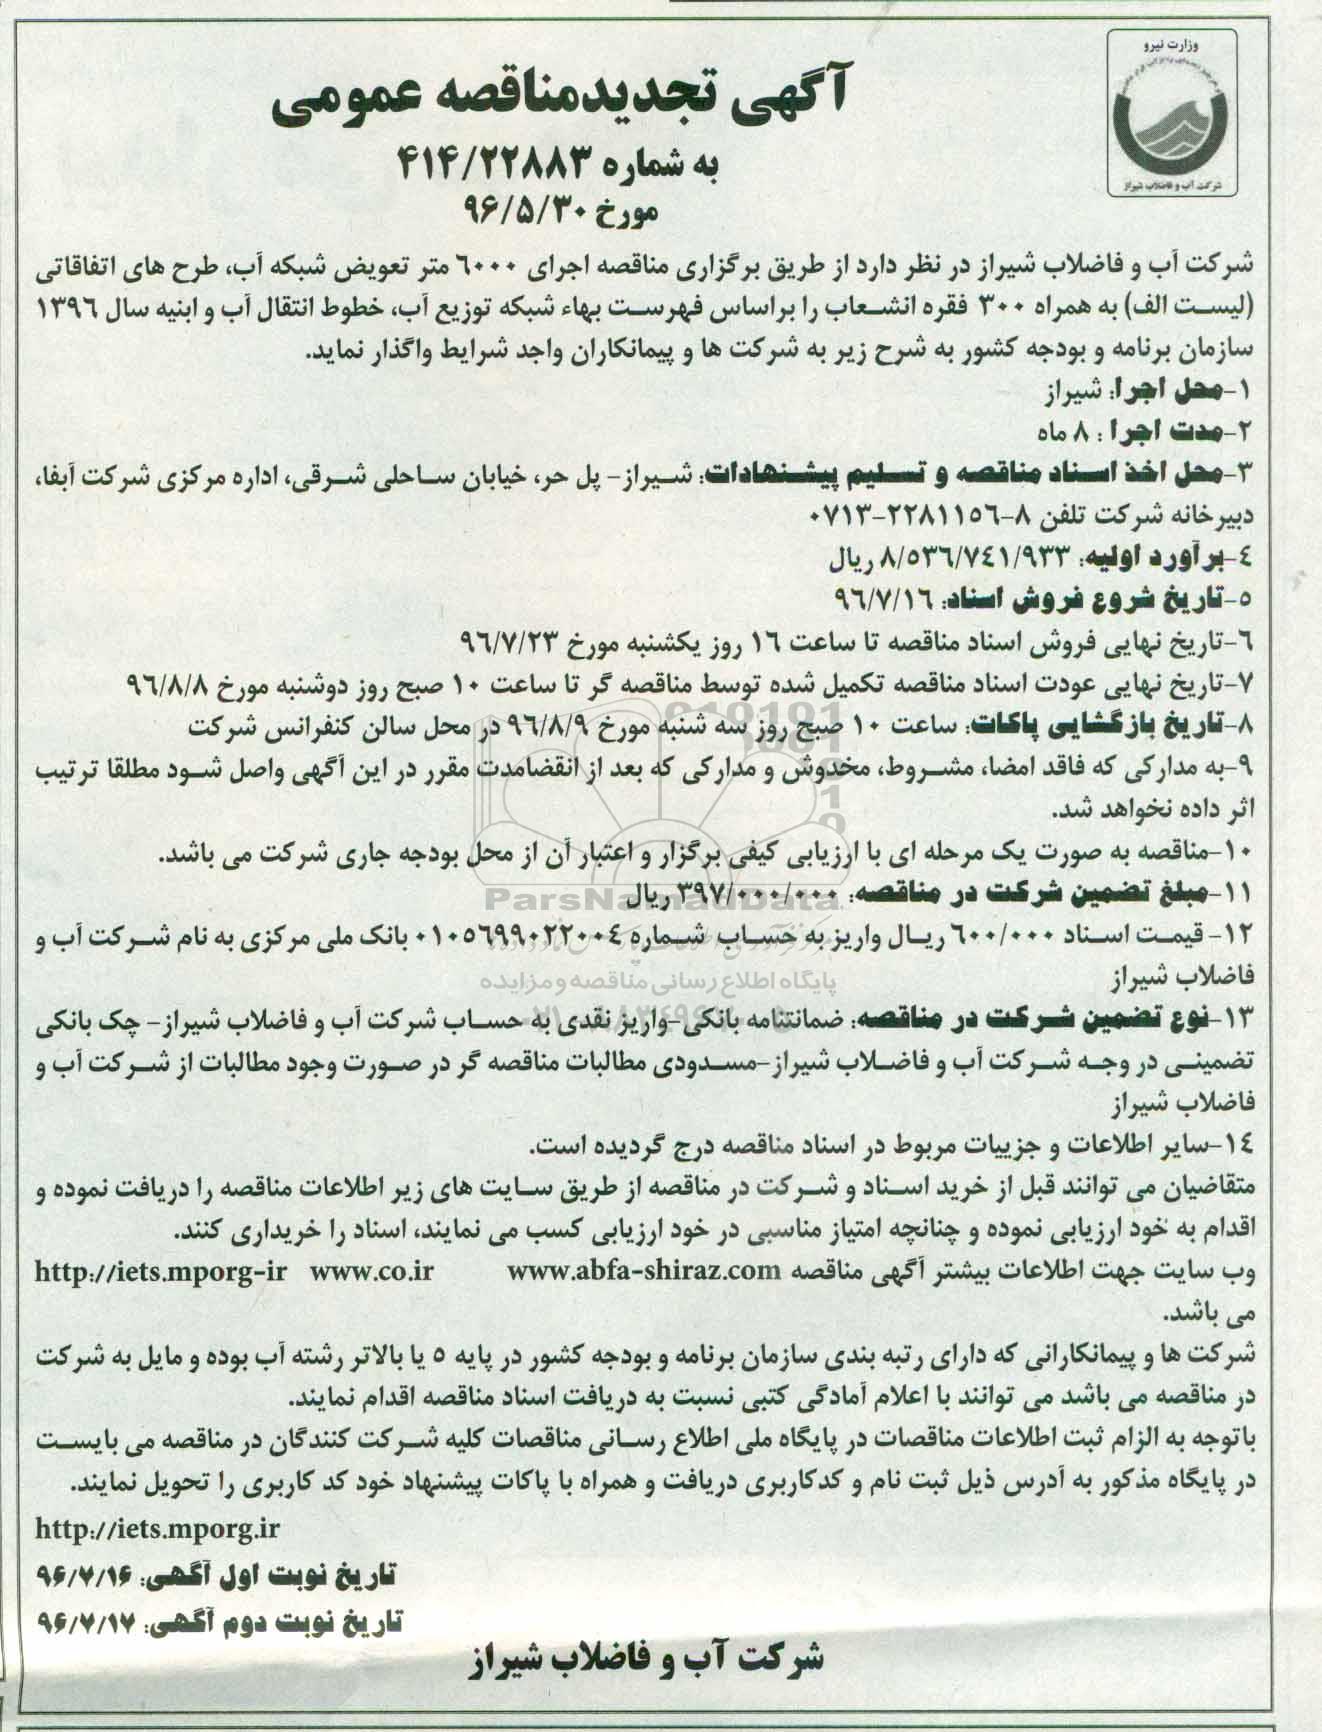 وزارت نیرو
شرکت آب و فاضلاب شیراز
آگهی تجدیدمناقصه عمومی
به شماره ۴۱۴/۲۲۸۸۳
مورخ ۹۶/۵/۳۰
شرکت آب و فاضلاب شیراز در نظر دارد از طریق برگزاری مناقصه اجرای ۶۰۰۰ متر تعویض شبکه آب، طرح های اتفاقاتی
(لیست الف) به همراه ۳۰۰ فقره انشعاب را براساس فهرست بهاء شبکه توزیع آب، خطوط انتقال آب و ابنیه سال ۱۳۹۶
سازمان برنامه و بودجه کشور به شرح زیر به شرکت ها و پیمانکاران واجد شرایط واگذار نماید.
۱-محل اجرا: شیراز
۲-مدت اجرا : ۸ ماه
۳-محل اخذ اسناد مناقصه و تسلیم پیشنهادات: شیراز- پل حر، خیابان ساحلی شرقی، اداره مرکزی شرکت آبفا،
دبیرخانه شرکت تلفن ۸-۲۲۸۱۱۵۶-۰۷۱۳
۴-برآورد اولیه: ۸/۵۳۶/۷۴۱/۹۳۳ ریال
۵-تاریخ شروع فروش اسناد: ۹۶/۷/۱۶
۶-تاریخ نهایی فروش اسناد مناقصه تا ساعت ۱۶ روز یکشنبه مورخ ۹۶/۷/۲۳
۷-تاریخ نهایی عودت اسناد مناقصه تکمیل شده توسط مناقصه گر تا ساعت ۱۰ صبح روز دوشنبه مورخ ۹۶/۸/۸
۸-تاریخ بازگشایی پاکات: ساعت ۱۰ صبح روز سه شنبه مورخ ۹۶/۸/۹ در محل سالن کنفرانس شرکت
۹-به مدارکی که فاقد امضا، مشروط، مخدوش و مدارکی که بعد از انقضامدت مقرر در این آگهی واصل شود مطلقا ترتیب
اثر داده نخواهد شد.
۱۰-مناقصه به صورت یک مرحله ای با ارزیابی کیفی برگزار و اعتبار آن از محل بودجه جاری شرکت می باشد.
ParsNamadData
۱۱-مبلغ تضمین شرکت در مناقصه: ۳۹۷/۰۰۰/۰۰۰ ریال
۱۲- قیمت اسناد ۶۰۰/۰۰۰ ریال واریز به حساب شماره ۰۱۰۵۶۹۹۰۲۲۰۰۴ بانک ملی مرکزی به نام شرکت آب و
فاضلاب شیراز
پایگاه اطلاع رسانی مناقصه و مزایده
۱۳-نوع تضمین شرکت در مناقصه: ضمانتنامه بانکی-واریز نقدی به حساب شرکت آب و فاضلاب شیراز- چک بانکی
تضمینی در وجه شرکت آب و فاضلاب شیراز-مسدودی مطالبات مناقصه گر در صورت وجود مطالبات از شرکت آب و
فاضلاب شیراز
۱۴-سایر اطلاعات و جزییات مربوط در اسناد مناقصه درج گردیده است.
متقاضیان می توانند قبل از خرید اسناد و شرکت در مناقصه از طریق سایت های زیر اطلاعات مناقصه را دریافت نموده و
اقدام به خود ارزیابی نموده و چنانچه امتیاز مناسبی در خود ارزیابی کسب می نمایند، اسناد را خریداری کنند.
وب سایت جهت اطلاعات بیشتر آگهی مناقصه www.abfa-shiraz.com www.co.ir http://iets.mporg-ir
می باشد.
شرکت ها و پیمانکارانی که دارای رتبه بندی سازمان برنامه و بودجه کشور در پایه ۵ یا بالاتر رشته آب بوده و مایل به شرکت
در مناقصه می باشد می توانند با اعلام آمادگی کتبی نسبت به دریافت اسناد مناقصه اقدام نمایند.
باتوجه به الزام ثبت اطلاعات مناقصات در پایگاه ملی اطلاع رسانی مناقصات کلیه شرکت کنندگان در مناقصه می بایست
در پایگاه مذکور به آدرس ذیل ثبت نام و کدکاربری دریافت و همراه با پاکات پیشنهاد خود کد کاربری را تحویل نمایند.
http://iets.mporg.ir
تاریخ نوبت اول آگهی: ۹۶/۷/۱۶
تاریخ نوبت دوم آگهی: ۹۶/۷/۱۷
شرکت آب و فاضلاب شیراز